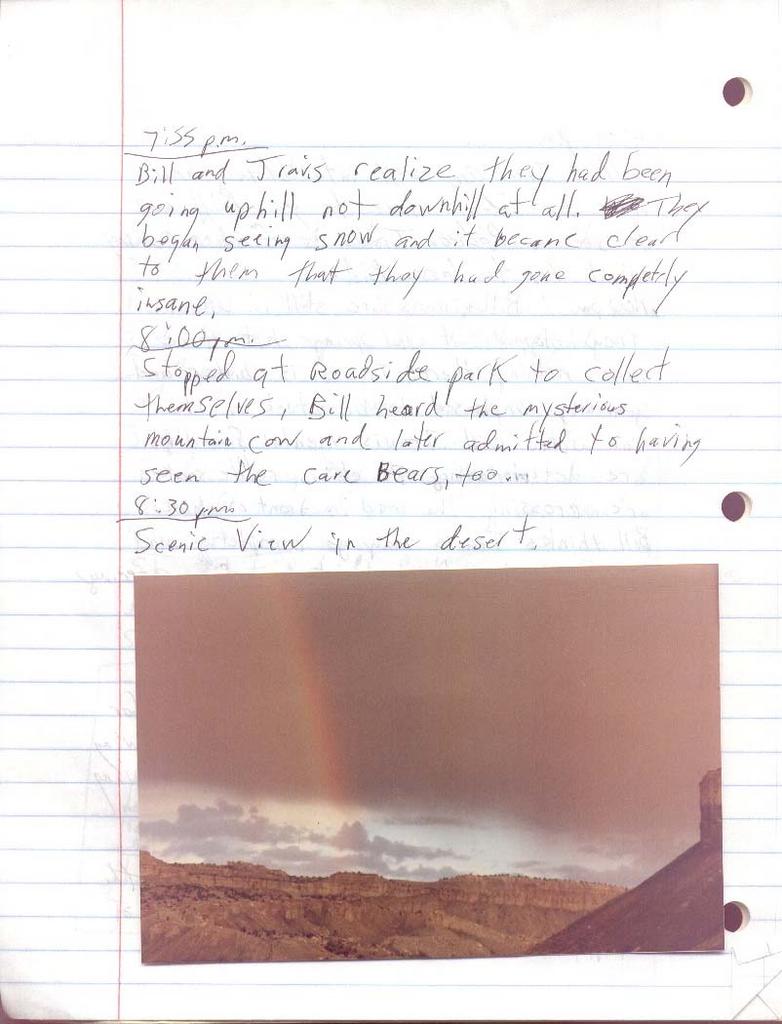 7:55 p.m.
Bill and Travis realize they had been
going uphill not downhill at all. They
began seeing snow and it became clear
to them that they had gone completly
insane.
8:00 p.m.
Stopped at Roadside park to collect
themselves, Bill heard the mysterious
mountain cow and later admitted to having
seen the care Bears, too.
8:30 p.m.
Scenic View in the desert.